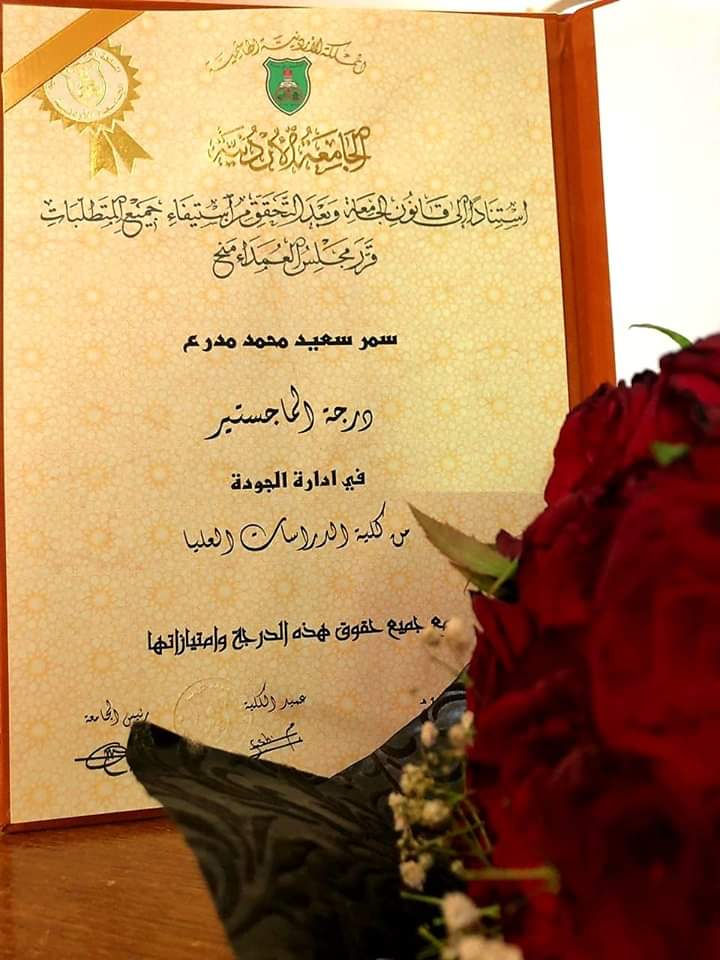 المملكة الأردنية الهاشمية
الجامعة الأردنية
استنادًا إلى قانون الجامعة وبعد التحقق من استيفاء جميع المتطلبات
قرر مجلس العمداء منح
سمر سعيد محمد مدرع
درجة الماجستير
في ادارة الجودة
من كلية الدراسات العليا
جميع حقوق هذه الدرجة وامتيازاتها
عميد الكلية
رئيس الجامعة